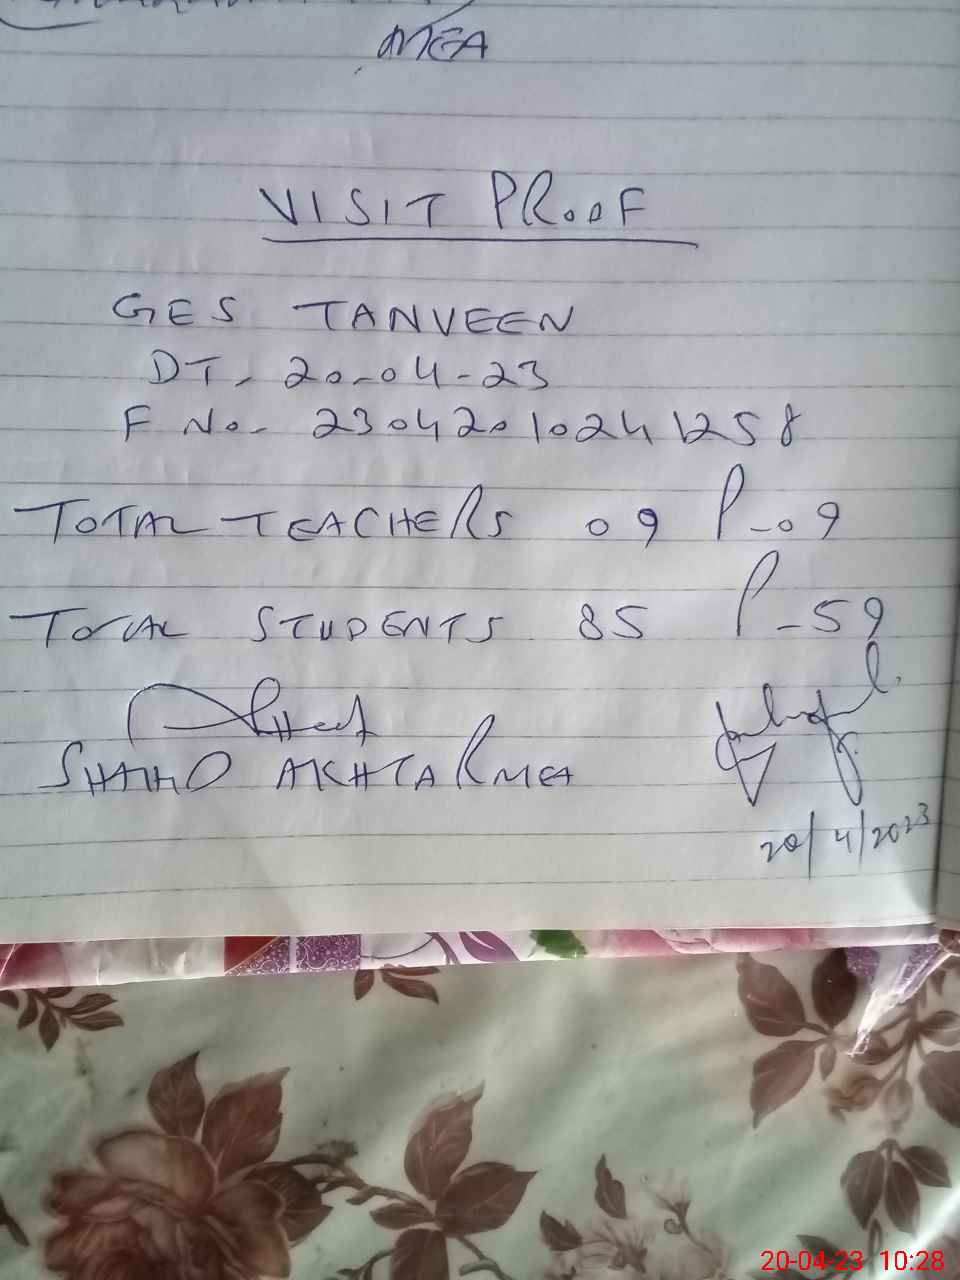 MEA
VISIT PROOF
GES TANVEEN
DT- 20-04-23
F No- 23042010241258
TOTAL TEACHERS 09 P-09
TOTAL STUDENTS 85 P-59
SHAHID AKHTAR MEA
20/4/2023
20-04-23 10:28